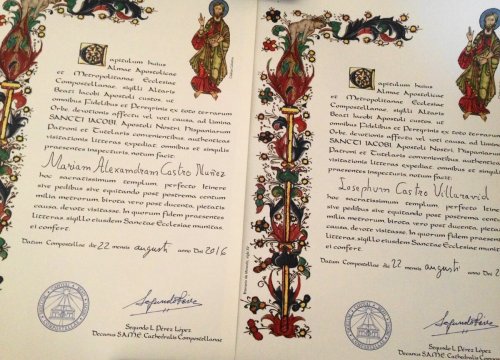 Capitulum huius
Almae Apostolicae
et Metropolitanae Ecclesiae
Compostellanae, sigilli Altaris
Beati Iacobi Apostoli custos, ut
omnibus Fidelibus et Peregrinis ex toto terrarum
Orbe, devotionis affectu vel voti causa, ad limina
SANCTI IACOBI Apostoli Nostri Hispaniarum
Patroni et Tutelaris convenientibus, authenticas
visitationis litteras expediat, omnibus et singulis
praesentes inspecturis notum facit:
Mariam Alexandram Castro Nuñez
hoc sacratissimum templum, perfecto itinere
sive pedibus sive equitando post postrema centum
milia metrorum, birota vero post ducenta, pietatis
causa, devote visitasse. In quorum fidem praesentes
litteras, sigillo eiusdem Sanctae Ecclesiae munitas,
ei confert.
Datum Compostellae die 22 mensis augusti anno Dni 2016
Segundo L. Pérez López
Decanus S.A.M.E. Cathedralis Compostellanae
Capitulum huius
Almae Apostolicae
et Metropolitanae Ecclesiae
Compostellanae, sigilli Altaris
Beati Iacobi Apostoli custos, ut
omnibus Fidelibus et Peregrinis ex toto terrarum
Orbe, devotionis affectu vel voti causa, ad limina
SANCTI IACOBI Apostoli Nostri Hispaniarum
Patroni et Tutelaris convenientibus, authenticas
visitationis litteras expediat, omnibus et singulis
praesentes inspecturis notum facit:
Iosephum Castro Villaravid
hoc sacratissimum templum, perfecto itinere
sive pedibus sive equitando post postrema centum
milia metrorum, birota vero post ducenta, pietatis
causa, devote visitasse. In quorum fidem praesentes
litteras, sigillo eiusdem Sanctae Ecclesiae munitas,
ei confert.
Datum Compostellae die 22 mensis augusti anno Dni
Segundo L. Pérez López
Decanus S.A.M.E. Cathedralis Compostellanae